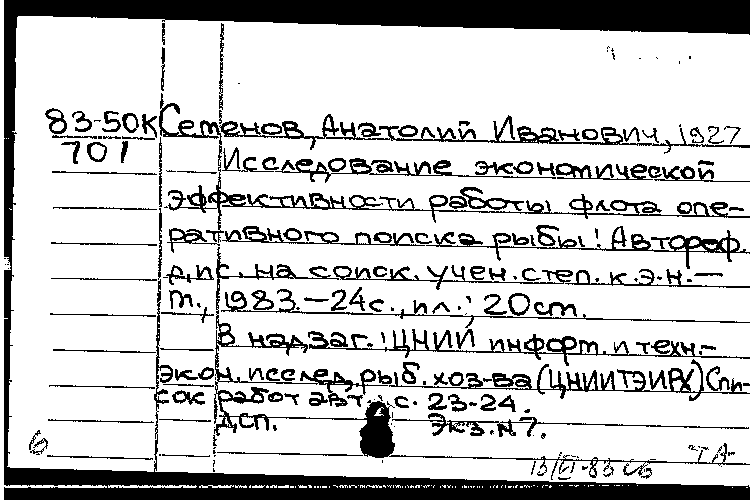 83-50К Семенов, Анатолий Иванович, 1927
701 Исследование экономической
эффективности работы флота опе-
ративного поиска рыбы: Автореф.
дис. на соиск. учен. степ. к.э.н. —
М., 1983. — 24 с., ил.; 20 см.
В надзаг.: ЦНИИ информ. и техн.-
экон. исслед. рыб. хоз-ва (ЦНИИТЭИРХ) Спи-
сок работ авт.: с. 23-24.
ДСП. Экз. №7.
6
13/VI-83 ТА